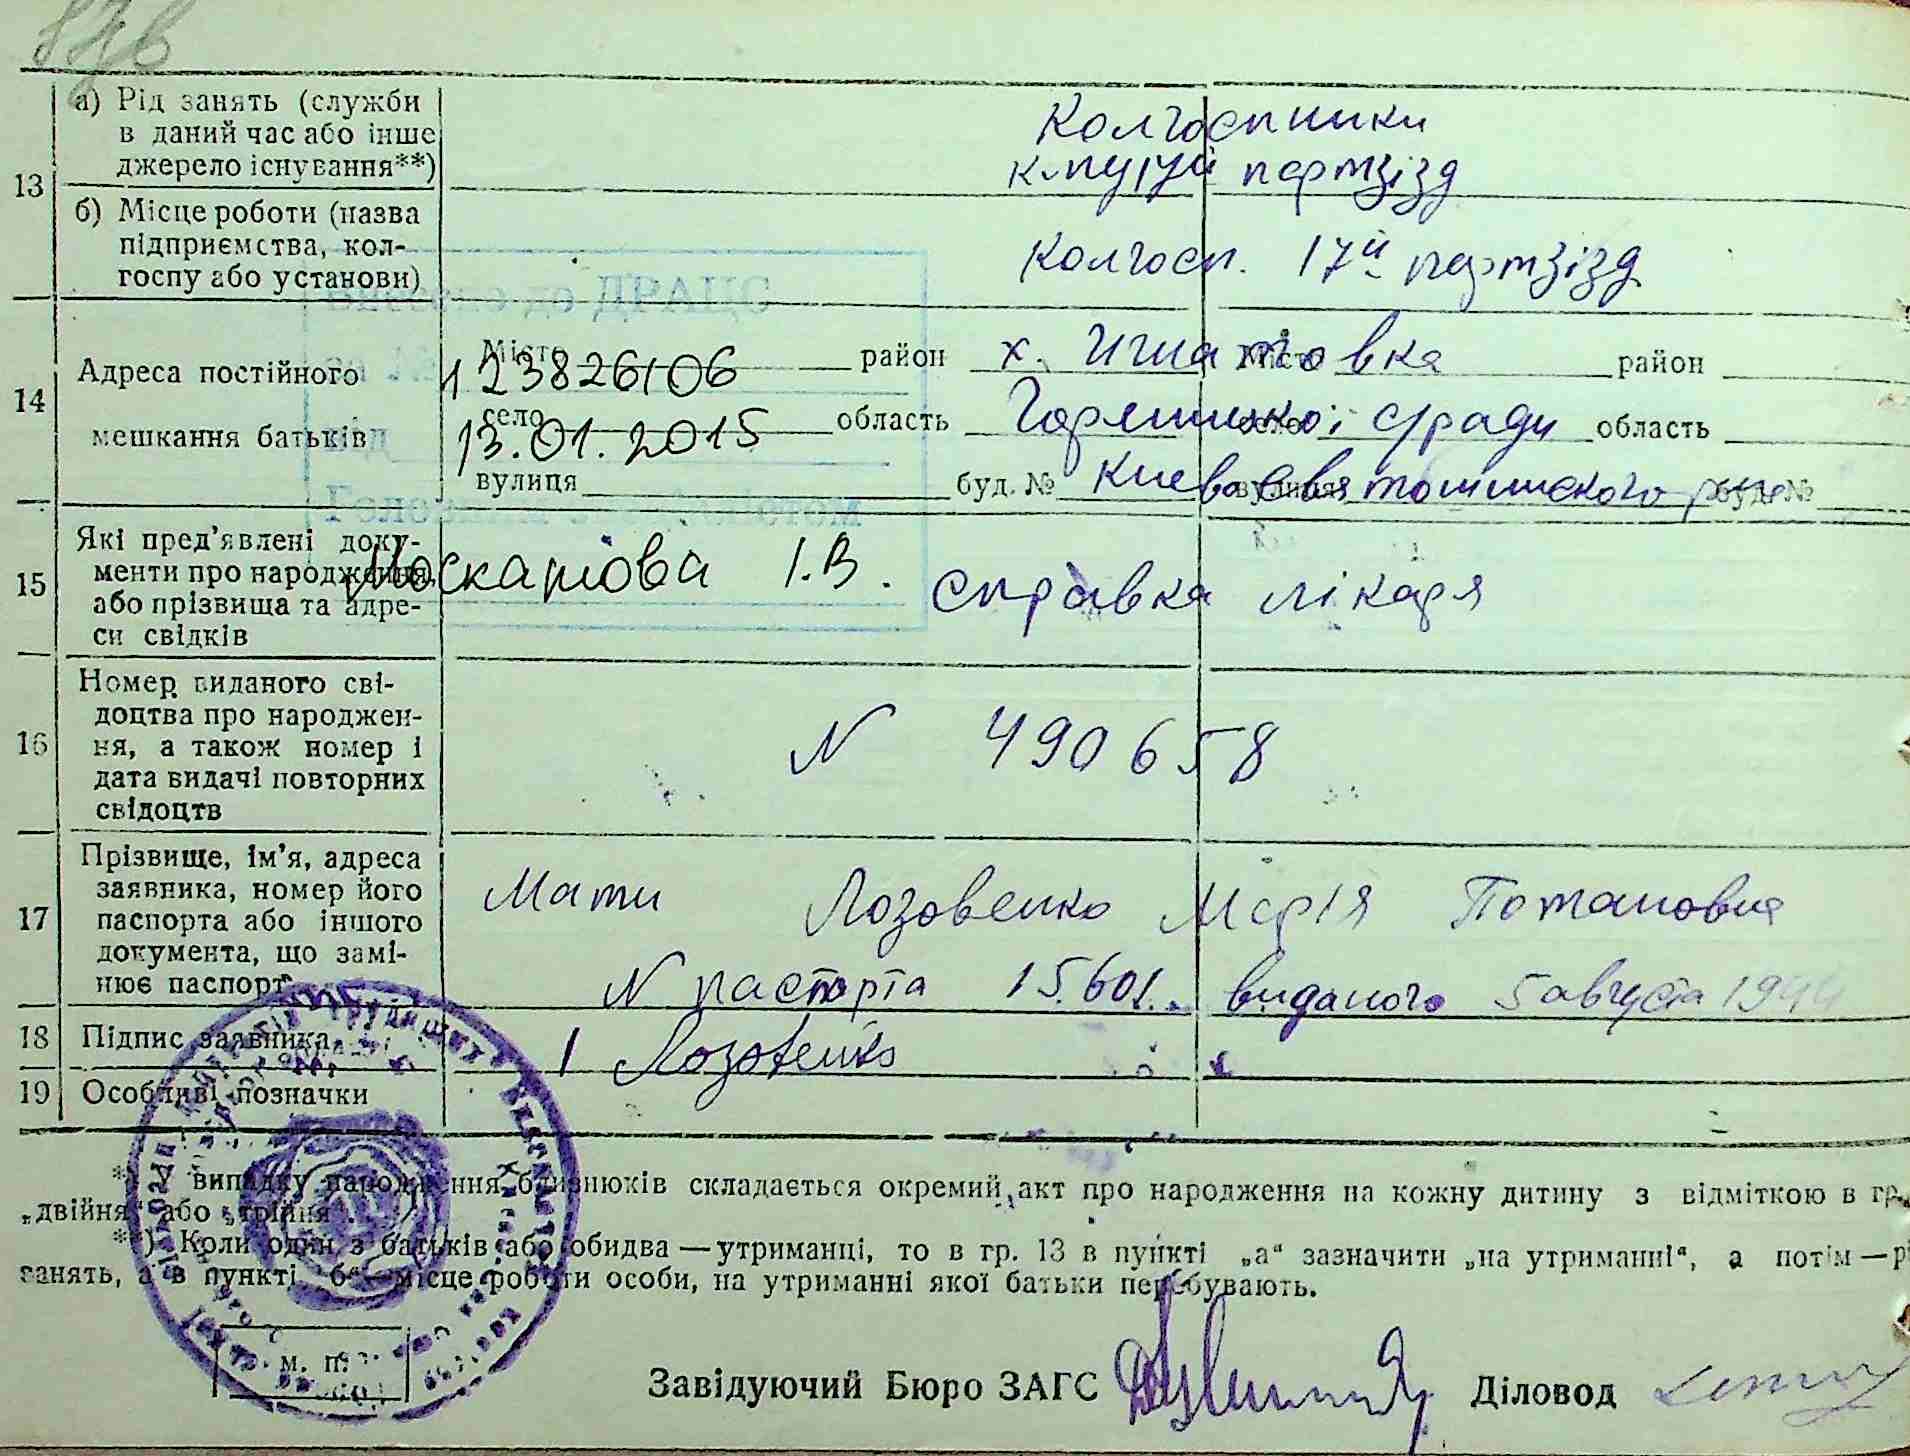 13
а) Рід занять (служби
в даний час або інше
джерело існування**)
Колгоспники
партзізд
б) Місце роботи (назва
підприємства, кол-
госпу або установи)
Колгосп. 17й партзізд
Внесено до ДРАЦС
14
Адреса постійного
мешкання батьків
Місто район х. Игнатовка Місто район
123826106
село область сради село область
13.01.2015
вулиця буд. № Києво Святошинського р-ну вулиця буд. №
15
Які пред'явлені доку-
менти про народження,
або прізвища та адре-
си свідків
І.В. справка лікаря
16
Номер виданого сві-
доцтва про народжен-
ня, а також номер і
дата видачі повторних
свідоцтв
N 490658
17
Прізвище, ім'я, адреса
заявника, номер його
паспорта або іншого
документа, що замі-
нює паспорт
Мати Лозовенко Марія Потаповна
N паспорта 15.601. виданого 5 августа
18 Підпис заявника Лозовенко
19 Особливі позначки
*) У випадку народження близнюків складається окремий акт про народження на кожну дитину з відміткою в гр.
„двійня“ або „трійня“
**) Коли один з батьків або обидва — утриманці, то в гр. 13 в пункті „а“ зазначити „на утриманні“, а потім —
занять, а в пункті „б“ — місце роботи особи, на утриманні якої батьки перебувають.
м. п.
Завідуючий Бюро ЗАГС Діловод